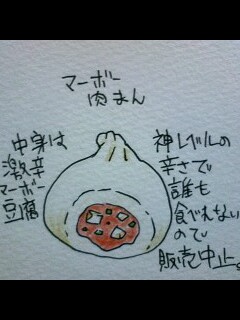 マーボー
肉まん
中身は
激辛
マーボー
豆腐
神レベルの
辛さで
誰も
食べれない
ので
販売中止。